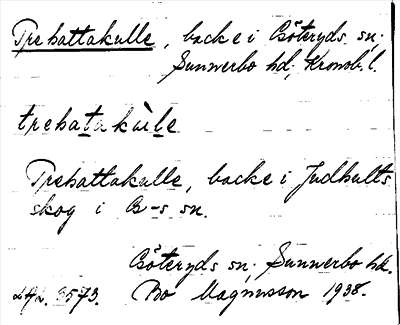 Trehattakulle, backe i Göteryds sn.
Sunnerbo hd, Kronob. l.
trehatakùl̀e
Trehattakulle, backe i Judhults
skog i G-s sn.
Göteryds sn, Sunnerbo hd.
5573. Bo Magnusson 1938.